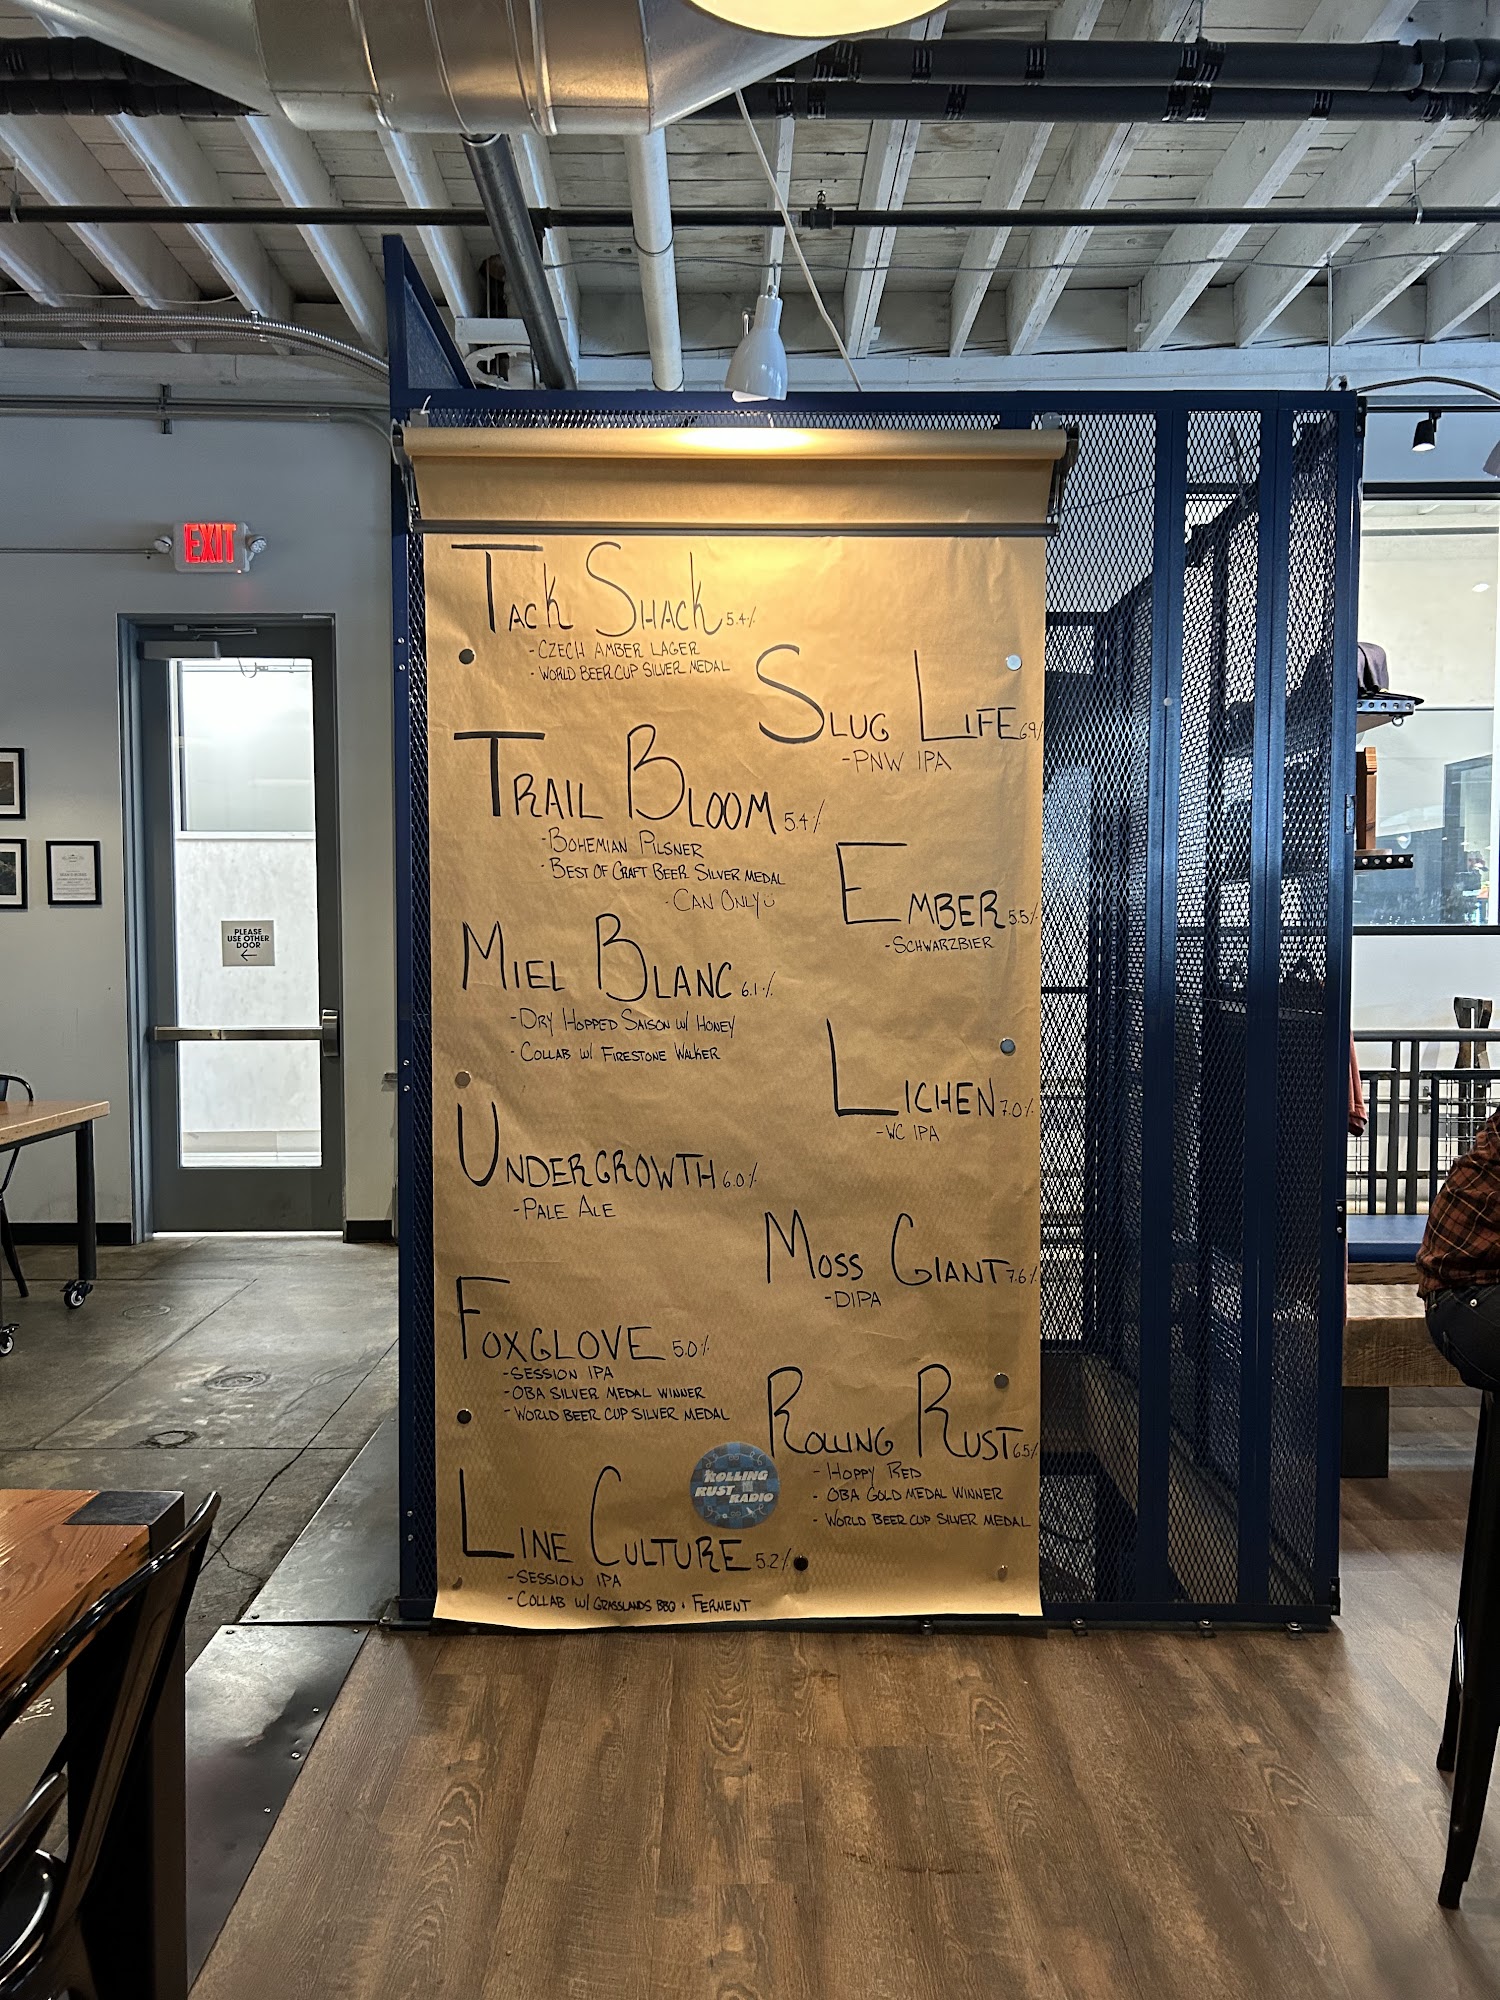 EXIT
PLEASE
USE OTHER
DOOR
←
TACK SHACK 5.4%
-CZECH AMBER LAGER
-WORLD BEER CUP SILVER MEDAL
TRAIL BLOOM 5.4%
-BOHEMIAN PILSNER
-BEST OF CRAFT BEER SILVER MEDAL
-CAN ONLY
MIEL BLANC 6.1%
-DRY HOPPED SAISON W/ HONEY
-COLLAB W/ FIRESTONE WALKER
UNDERGROWTH 6.0%
-PALE ALE
FOXGLOVE 5.0%
-SESSION IPA
-OBA SILVER MEDAL WINNER
-WORLD BEER CUP SILVER MEDAL
LINE CULTURE 5.2%
-SESSION IPA
-COLLAB W/ GRASSLANDS BBQ + FERMENT
SLUG LIFE 6.9%
-PNW IPA
EMBER 5.5%
-SCHWARZBIER
LICHEN 7.0%
-WC IPA
MOSS GIANT 7.6%
-DIPA
ROLLING RUST 6.5%
-HOPPY RED
-OBA GOLD MEDAL WINNER
-WORLD BEER CUP SILVER MEDAL
ROLLING
RUST RADIO